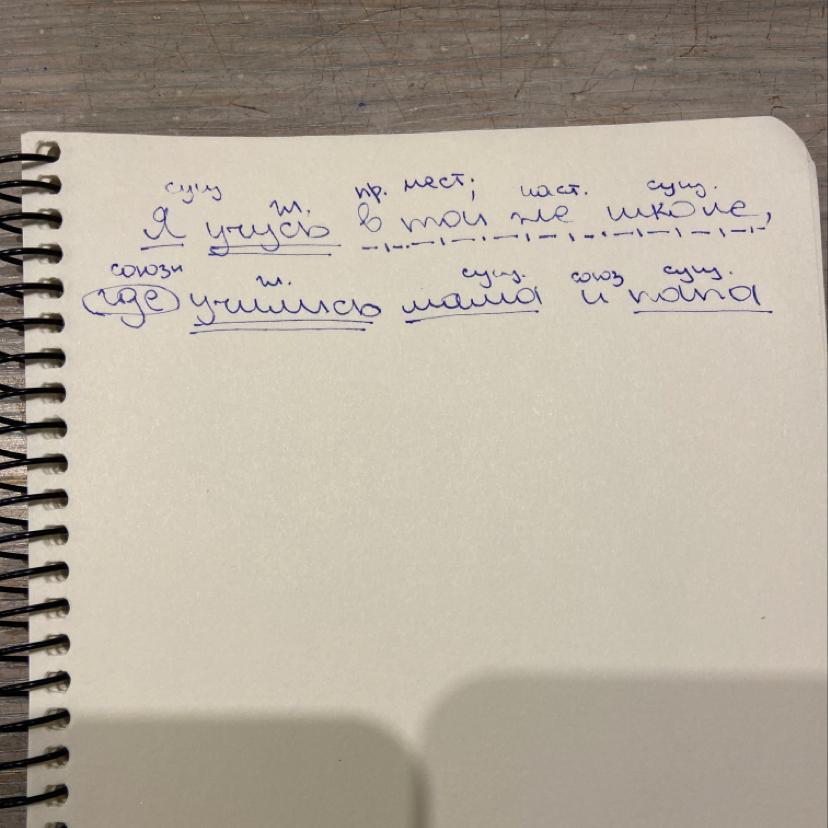 сущ гл. пр. мест; част. сущ.
Я учусь в той же школе,
союзн гл. сущ. союз сущ.
где учились мама и папа